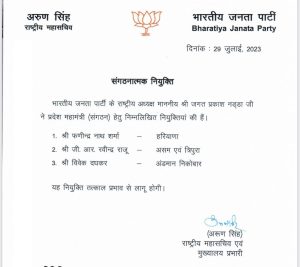 अरुण सिंह
राष्ट्रीय महासचिव
भारतीय जनता पार्टी
Bharatiya Janata Party
दिनांक : 29 जुलाई, 2023
संगठनात्मक नियुक्ति
भारतीय जनता पार्टी के राष्ट्रीय अध्यक्ष माननीय श्री जगत प्रकाश नड्डा जी
ने प्रदेश महामंत्री (संगठन) हेतु निम्नलिखित नियुक्तियां की हैं।
1. श्री फणीन्द्र नाथ शर्मा -- हरियाणा
2. श्री जी. आर. रवीन्द्र राजू -- असम एवं त्रिपुरा
3. श्री विवेक दाधकर -- अंडमान निकोबार
यह नियुक्ति तत्काल प्रभाव से लागू होगी।
(अरूण सिंह)
राष्ट्रीय महासचिव एवं
मुख्यालय प्रभारी